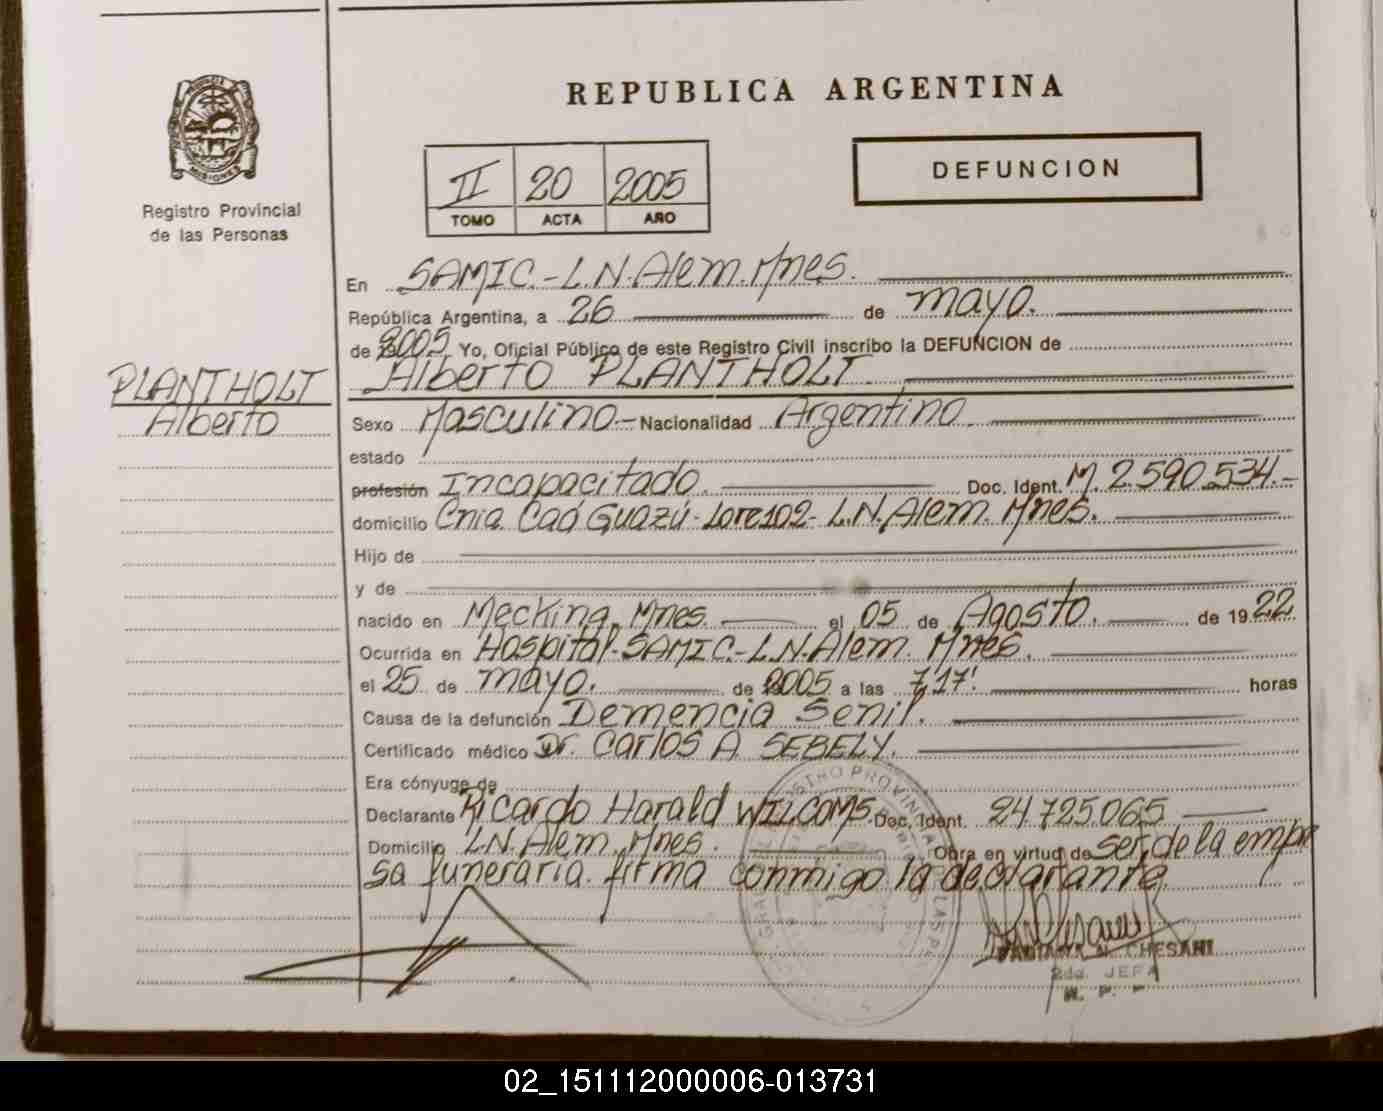 REPUBLICA ARGENTINA
MISIONES
Registro Provincial
de las Personas
II 20 2005
TOMO ACTA AÑO
DEFUNCION
En SAMIC.-L.N.Alem.Mnes.
República Argentina, a 26 de mayo.
de 2005. Yo, Oficial Público de este Registro Civil inscribo la DEFUNCION de
Alberto PLANTHOLT.
PLANTHOLT
Alberto
Sexo Masculino.- Nacionalidad Argentino.
estado
profesión Incapacitado. Doc. Ident. M. 2.590.534.-
domicilio Cnia. Caá Guazú - Lote 102- L.N. Alem. Mnes.
Hijo de
y de
nacido en Mecking. Mnes. el 05 de Agosto. de 1922
Ocurrida en Hospital-SAMIC.-L.N.Alem. Mnes.
el 25 de mayo. de 2005 a las 7'17'. horas
Causa de la defunción Demencia Senil.
Certificado médico Dr. Carlos A. SEBELY.
Era cónyuge de
Declarante Ricardo Harald WILCOMS. Doc. Ident. 24.725.065
Domicilio L.N. Alem. Mnes. Obra en virtud de ser de la empre
sa funeraria. firma conmigo la declarante
FABIANA N. CHESANI
2da. JEFA
R. P. P
02_151112000006-013731